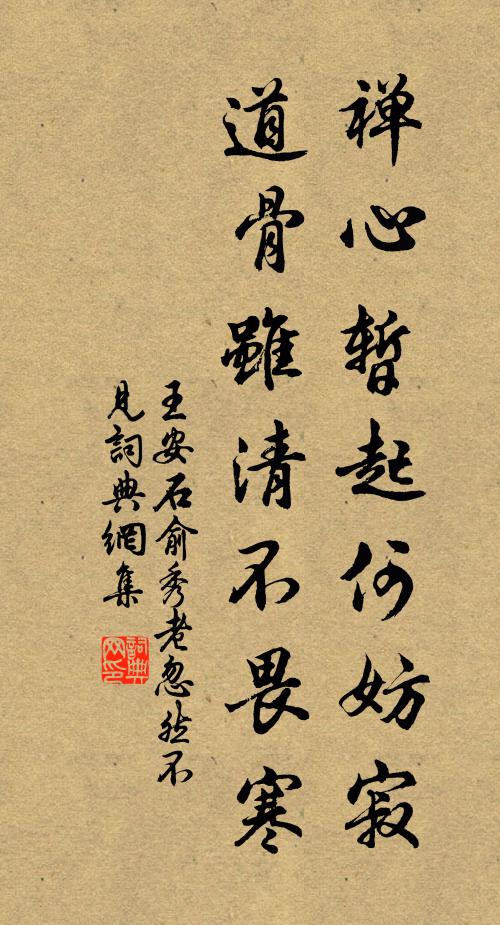 禅心暫起何妨寂
道骨雖清不畏寒
王安石俞秀老忽然不
見詞典網集
詞典网印